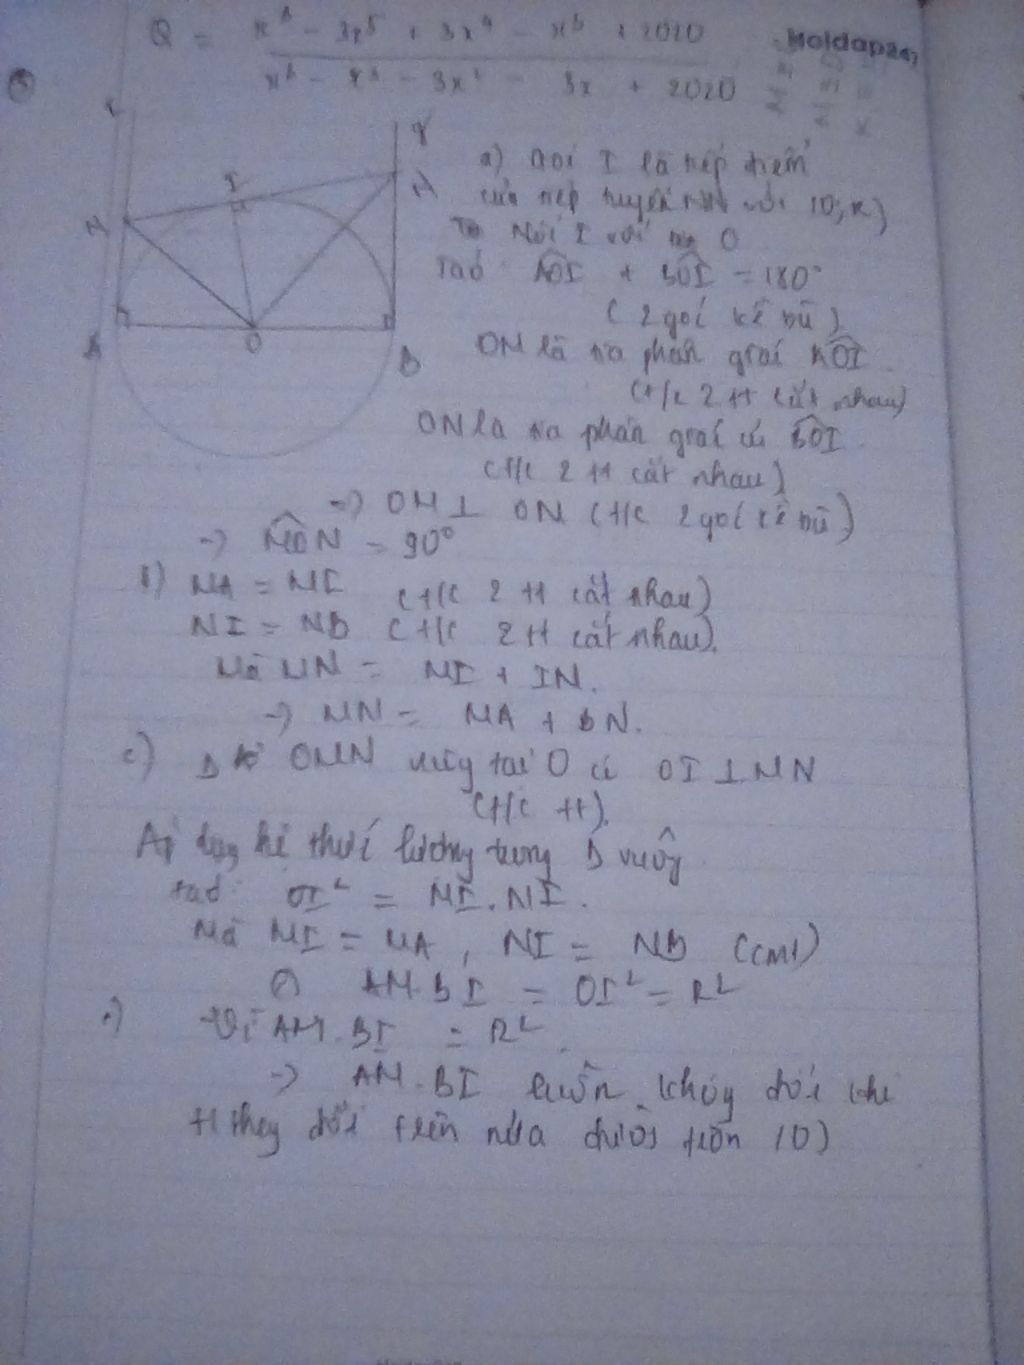 Q = x⁶ - 3x⁵ + 3x⁴ - x³ + 2020
x⁶ - x³ - 3x² - 3x + 2020
Hoidap247
y
I
N
A
O
B
a) Gọi I là tiếp điểm
của tiếp tuyến MN với (O;R)
Nối I với O
Ta có AOI + BOI = 180°
(2 góc kề bù)
OM là tia phân giác AOI
(t/c 2 tt cắt nhau)
ON là tia phân giác BOI
(t/c 2 tt cắt nhau)
=> OM ⊥ ON (t/c 2 góc kề bù)
=> MON = 90°
b) MA = MI (t/c 2 tt cắt nhau)
NI = NB (t/c 2 tt cắt nhau).
Mà MN = MI + IN.
=> MN = MA + BN.
c) Δ OMN vuông tại O có OI ⊥ MN
(t/c tt).
Áp dụng hệ thức lượng trong Δ vuông
ta có OI² = MI.NI.
Mà MI = MA, NI = NB (cmt)
AM.BI = OI² = R²
Vì AM.BI = R²
=> AM.BI luôn không đổi khi
M thay đổi trên nửa đường tròn (O)